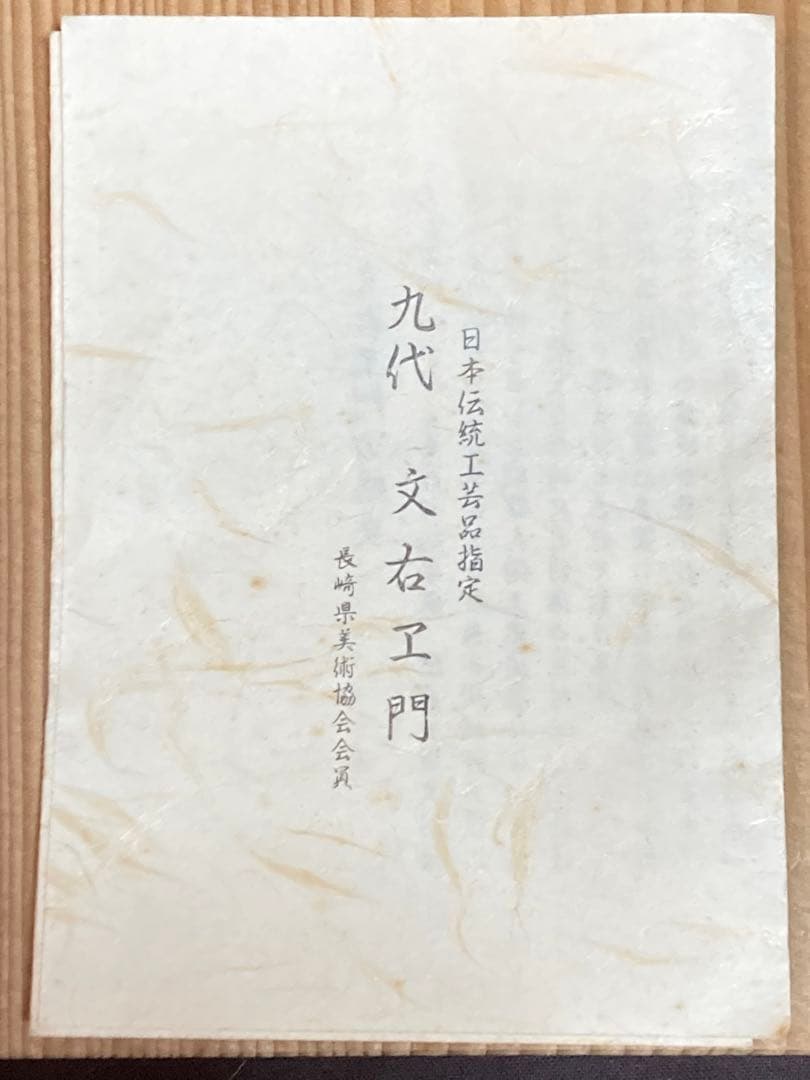 日本伝統工芸品指定
九代 文右ヱ門
長崎県美術協会会員